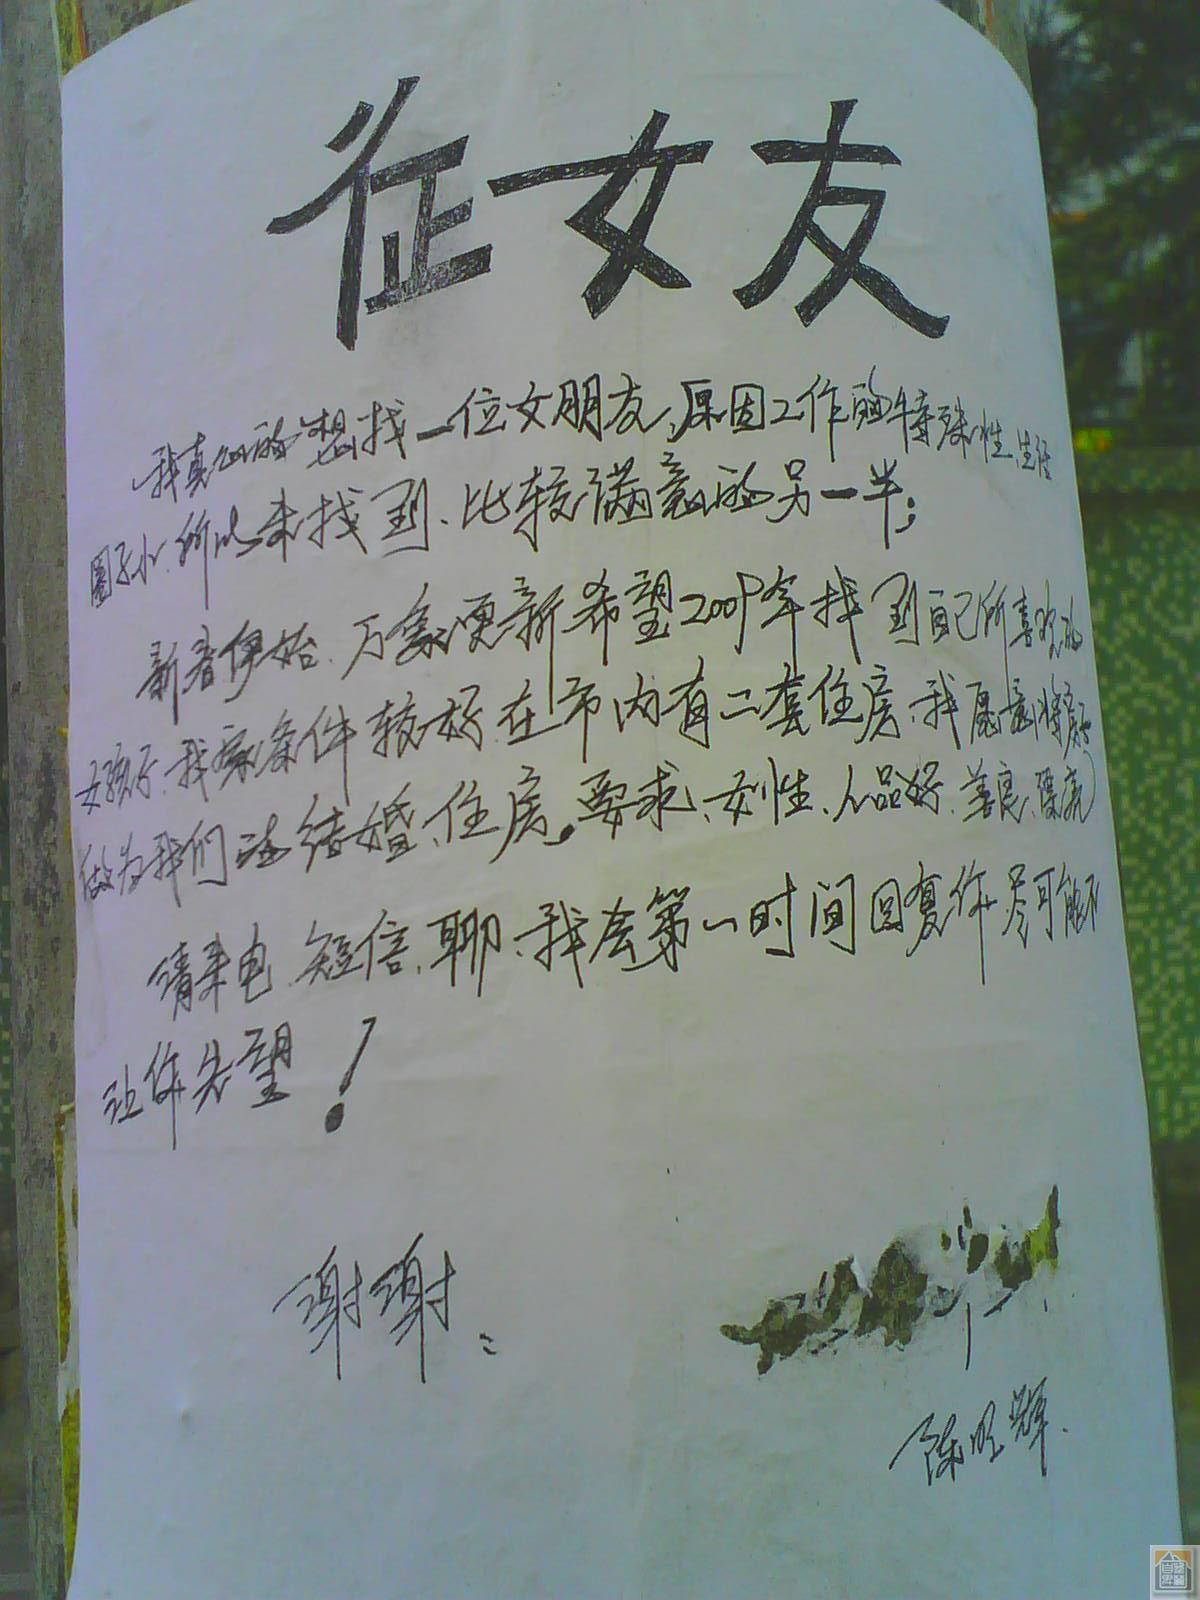 征女友
我真心的想找一位女朋友、原因工作的特殊性、生活
圈子小、所以未找到、比较满意的另一半；
新春伊始、万象更新希望2009年找到自己所喜欢的
女孩子、我家条件较好、在市内有二套住房、我愿意将
做为我们结婚、住房。要求、女性、人品好、善良、漂亮
请来电、短信、聊、我会第一时间回复你尽可能不
让你失望！
谢谢
陈旺辉.